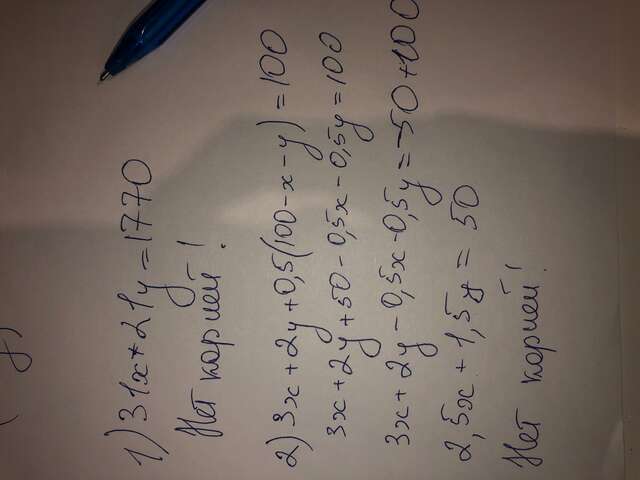 1) 31x+21y=1770
Нет корней!
2) 3x+2y+0,5(100-x-y)=100
3x+2y+50-0,5x-0,5y=100
3x+2y-0,5x-0,5y=-50+100
2,5x+1,5y=50
Нет корней!